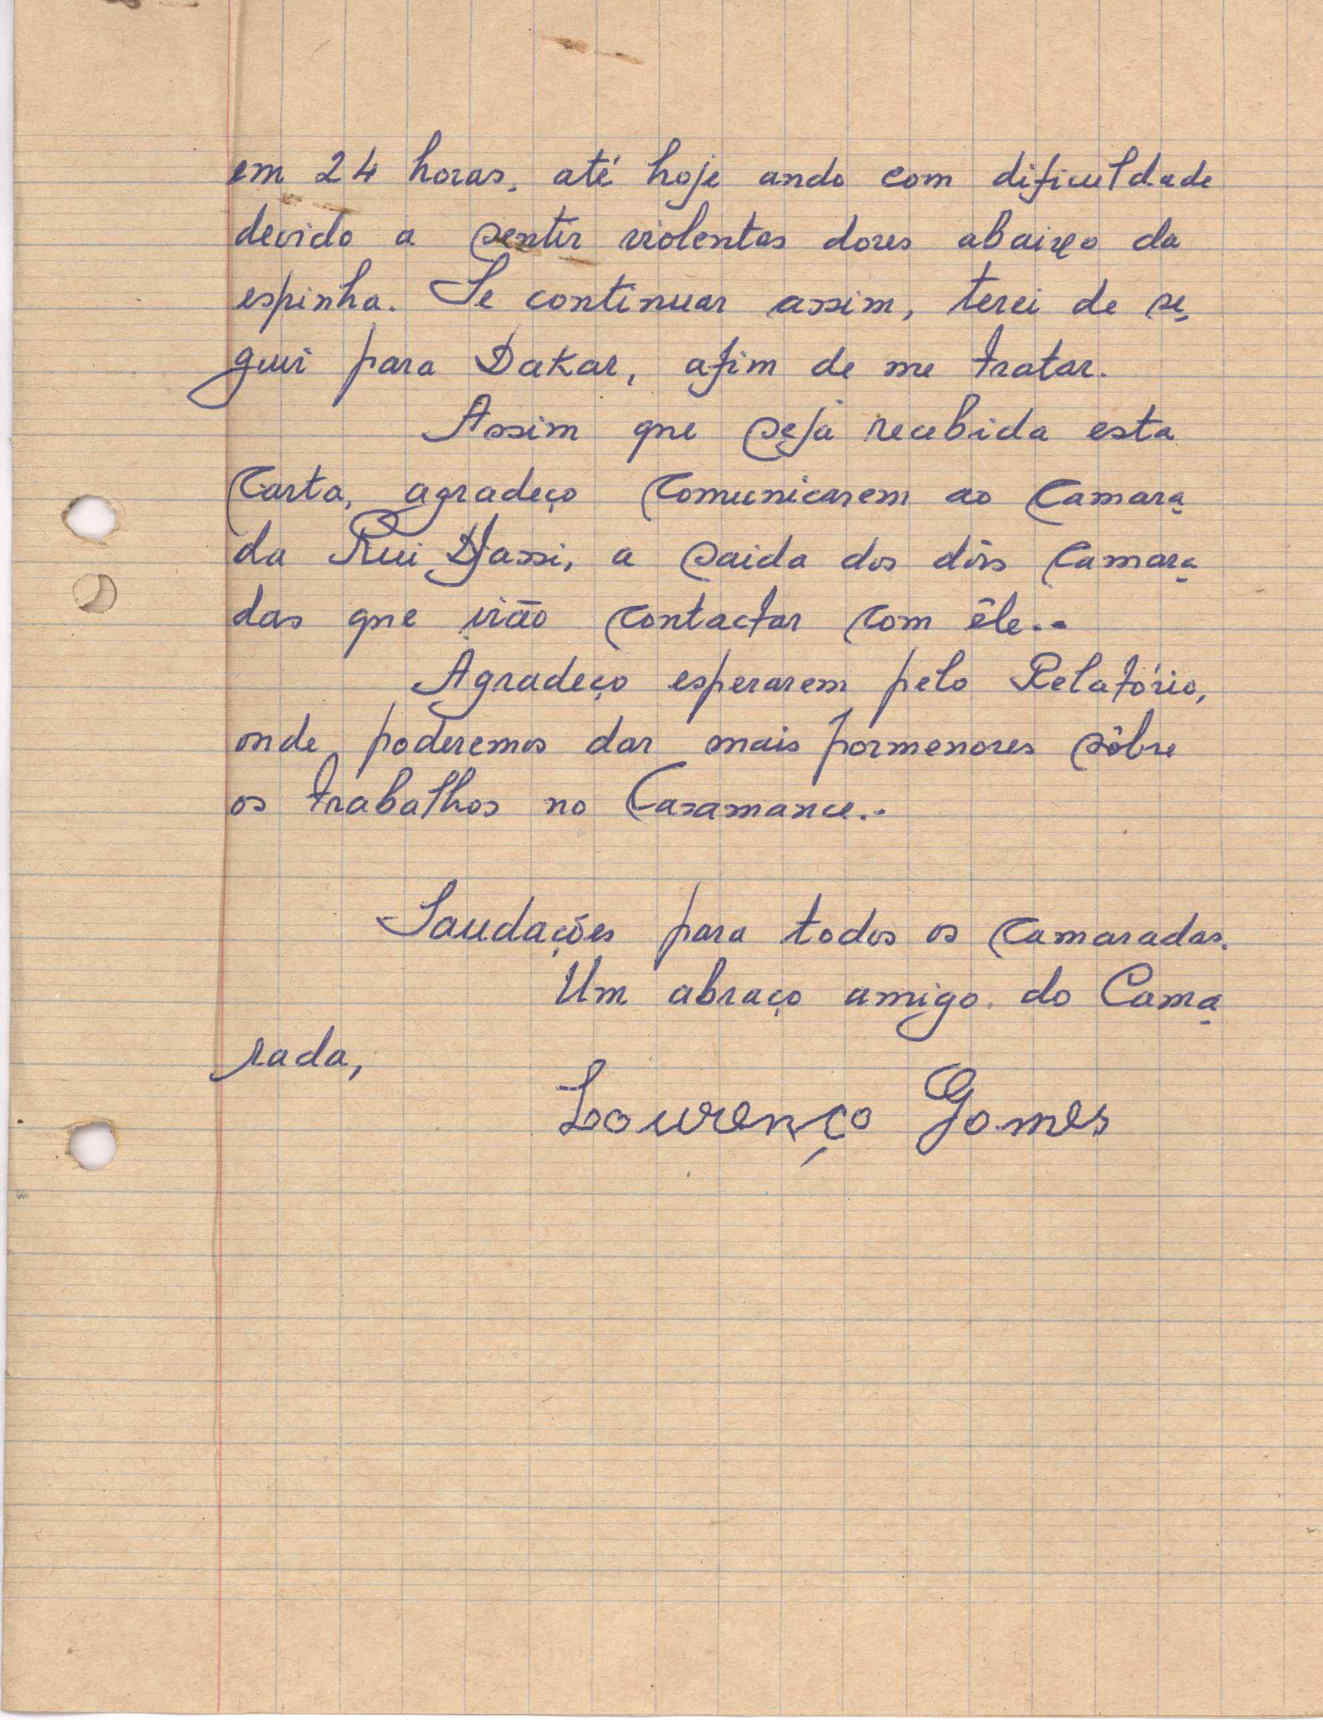 em 24 horas, até hoje ando com dificuldade
devido a sentir violentas dores abaixo da
espinha. Se continuar assim, terei de se-
guir para Dakar, afim de me tratar.
Assim que seja recebida esta
carta, agradeço comunicarem ao Camara-
da Rui Djassi, a saida dos dôis camara-
das que irão contactar com êle.-
Agradeço esperarem pelo Relatório,
onde poderemos dar mais pormenores sôbre
os trabalhos no Casamance.-
Saudações para todos os camaradas.
Um abraço amigo do Cama-
rada,
Lourenço Gomes